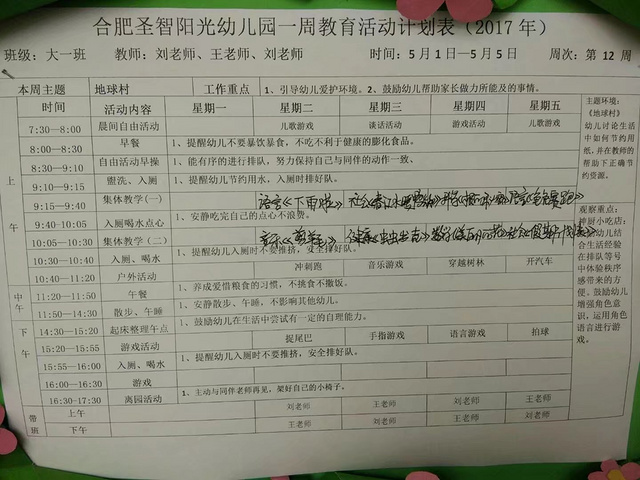 合肥圣智阳光幼儿园一周教育活动计划表（2017 年）
班级：大一班 教师：刘老师、王老师、刘老师 时间：5月1日—5月5日 周次：第 12 周
本周主题 地球村 工作重点 1、引导幼儿爱护环境。2、鼓励幼儿帮助家长做力所能及的事情。
时间 活动内容 星期一 星期二 星期三 星期四 星期五
上午
7:30—8:00 晨间自由活动 儿歌游戏 谈话活动 游戏活动 儿歌游戏
8:00—8:30 早餐 1、提醒幼儿不要暴饮暴食，不吃不利于健康的膨化食品。
8:30—9:10 自由活动早操 1、能有序的进行排队，努力保持自己与同伴的动作一致、
9:10—9:15 盥洗、入厕 1、提醒幼儿节约用水，入厕时排好队。
9:15—9:40 集体教学(一) 语言《下雨啦》
9:40—10:05 入厕喝水点心 1、安静吃完自己的点心不浪费。
10:05—10:30 集体教学（二）
10:30—10:40 入厕、喝水 1、提醒幼儿入厕时不要推挤，安全排好队。
10:40—11:20 户外活动 冲刺跑 音乐游戏 穿越树林 开汽车
中午
11:20—11:50 午餐 1、养成爱惜粮食的习惯，不挑食不撒饭。
11:50—14:30 散步、午睡 1、安静散步、午睡，不影响其他幼儿。
下午
14:30—15:20 起床整理午点 1、鼓励幼儿在生活中尝试有一定的自理能力。
15:20—15:55 游戏活动 捉尾巴 手指游戏 语言游戏 拍球
15:55—16:00 入厕、喝水 1、提醒幼儿入厕时不要推挤，安全排好队。
16:00—16:30 游戏
16:30—17:30 离园活动 1、主动与同伴老师再见，架好自己的小椅子。
带班
上午 刘老师 王老师 刘老师 王老师
下午 王老师 刘老师 王老师 刘老师
主题环境：
《地球村》
幼儿讨论生活
中如何节约用
纸，并在教师的
帮助下正确节
约资源。
观察重点：
神厨小吃店：
幼儿
结合生活经验
在排队等号
中体验秩序
感带来的方
便。鼓励幼儿
增强角色意
识，运用角色
语言进行游
戏。